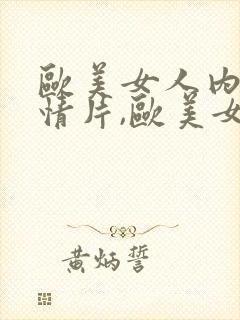 歐美女人內
情片,歐美女
黄炳誓